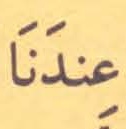 عِندَنَا